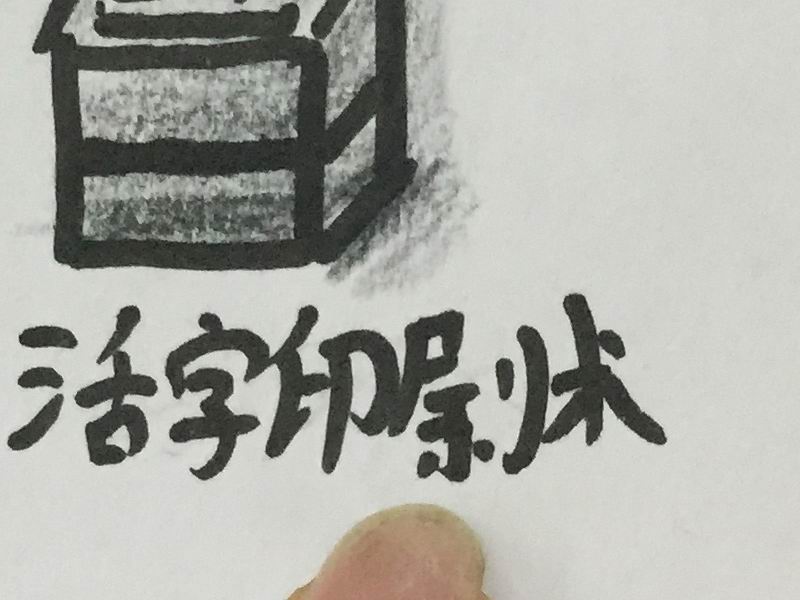 活字印刷术